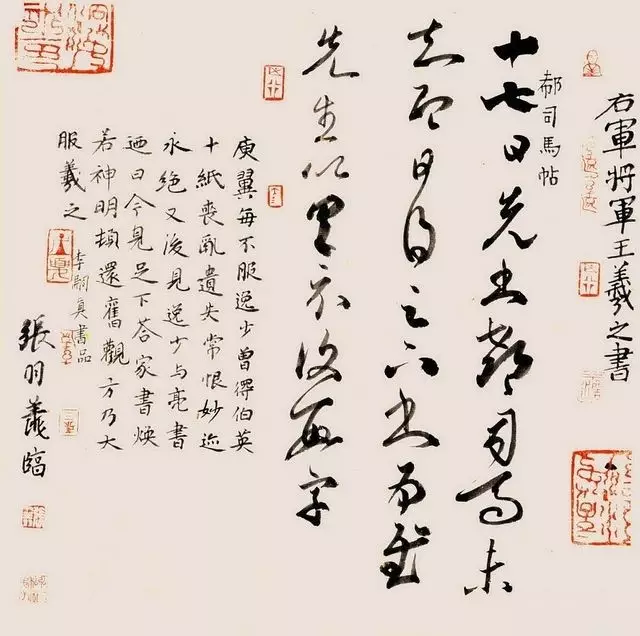 右軍將軍王羲之書
郗司馬帖
十七日先書郗司馬未
去即日得足下書為慰
先書以具示復數字
庾翼每不服逸少曾得伯英
十紙喪亂遺失常恨妙迹
永絶又後見逸少与亮書
迺曰今見足下荅家書焕
若神明頓還舊觀方乃大
服羲之
李嗣真書品
張羽羲臨